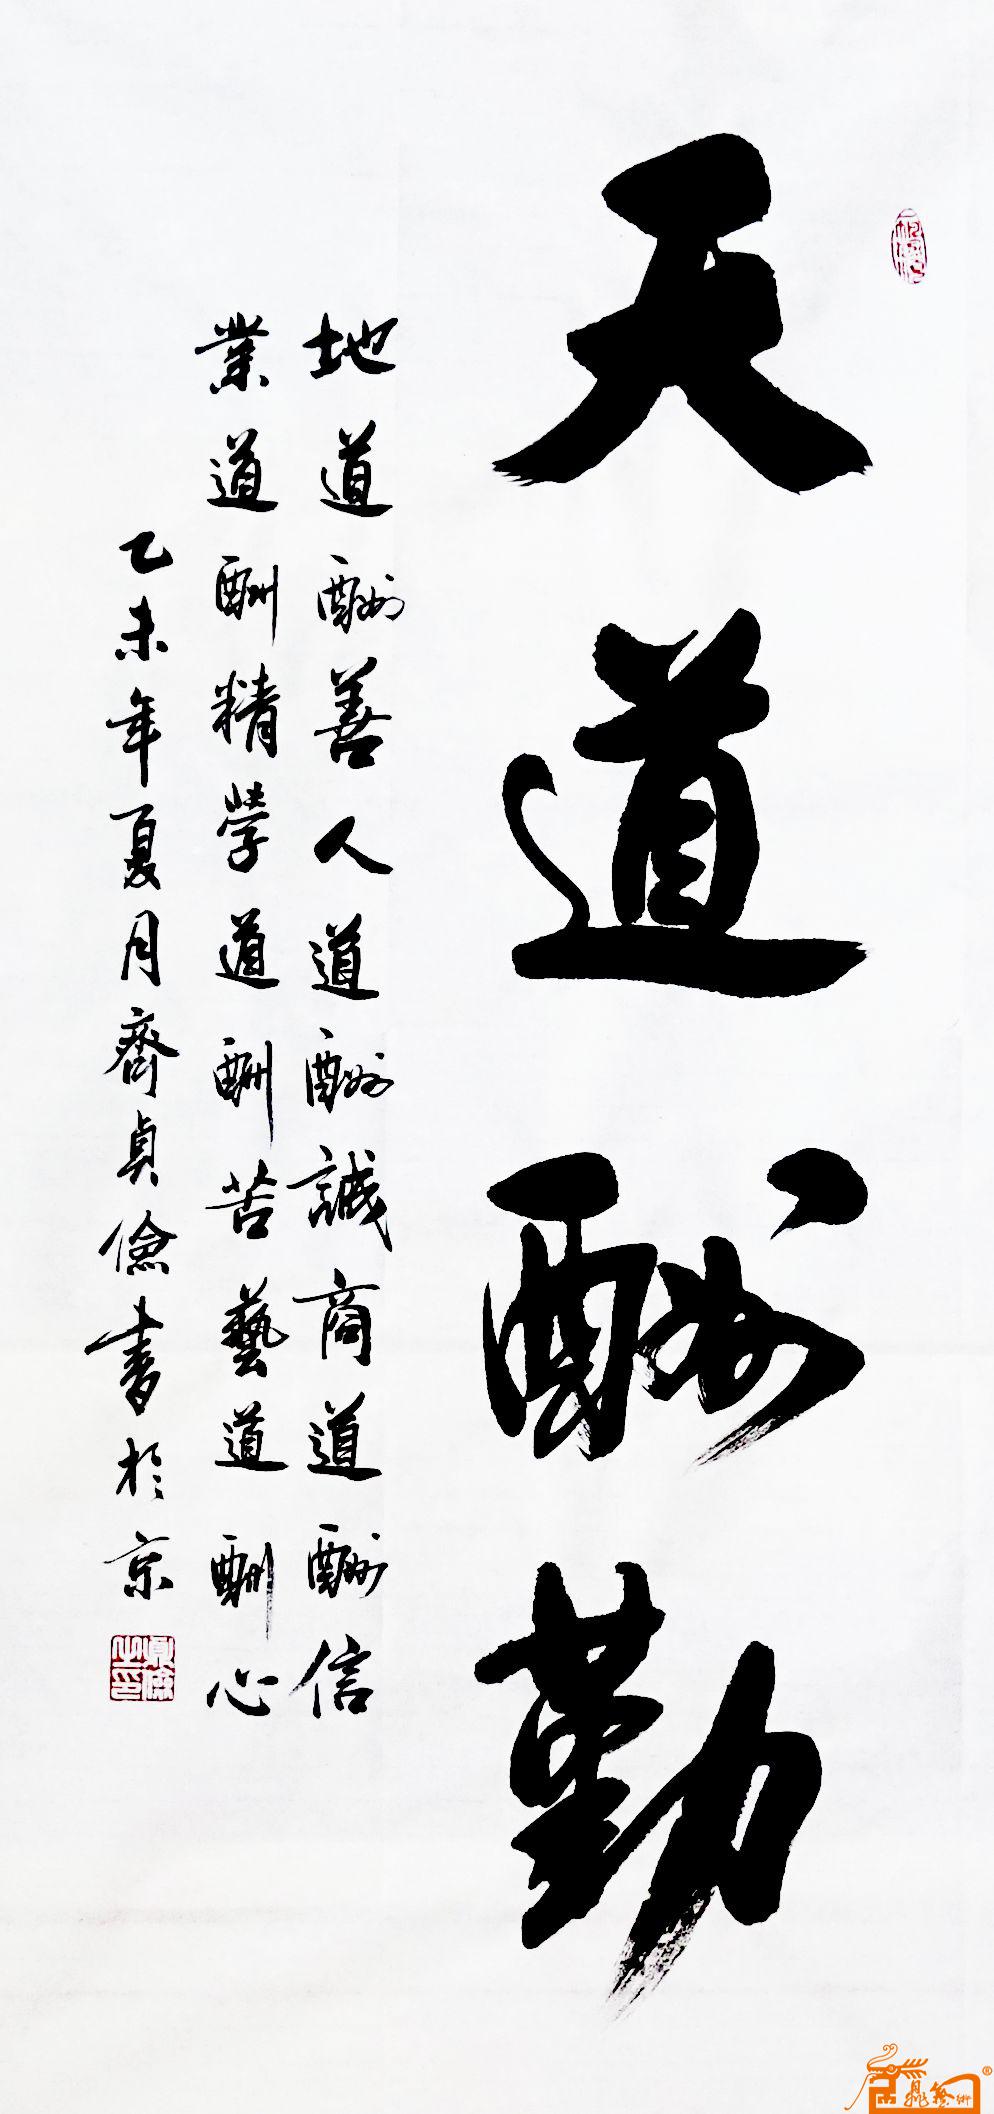 天道酬勤
地道酬善人道酬誠商道酬信
業道酬精學道酬苦藝道酬心
乙未年夏月齊貞儉書於京